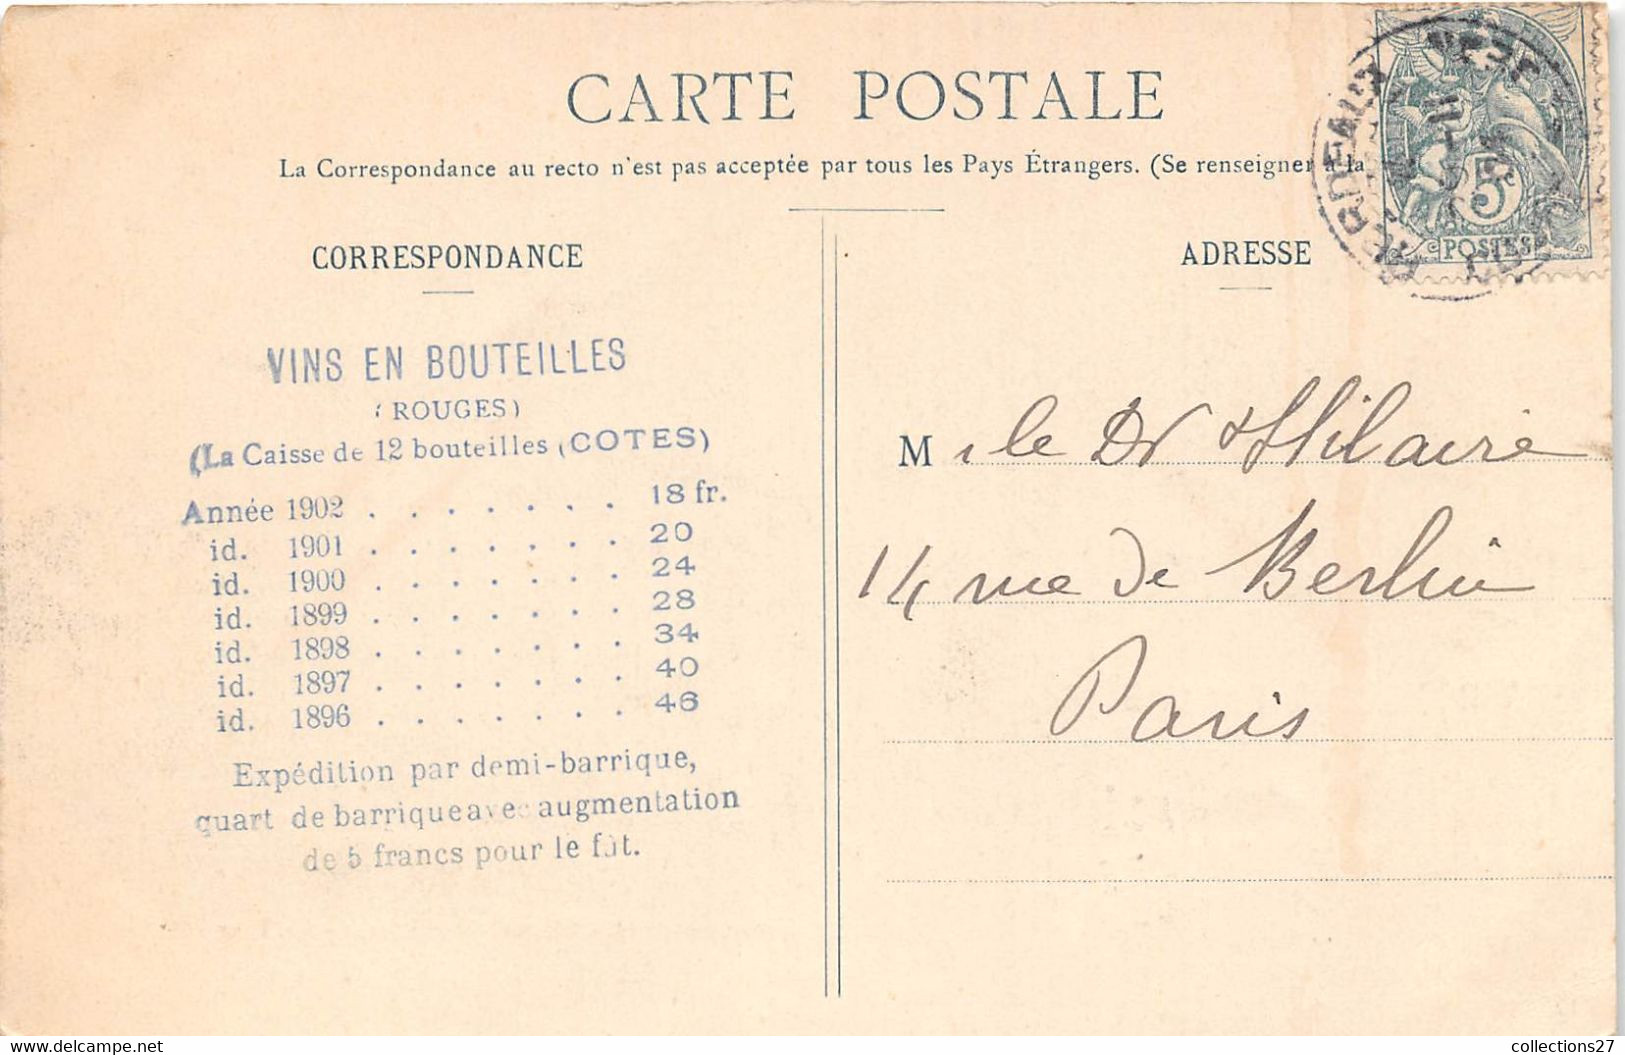 CARTE POSTALE
La Correspondance au recto n'est pas acceptée par tous les Pays Étrangers. (Se renseigner à la
CORRESPONDANCE
VINS EN BOUTEILLES
(ROUGES)
(La Caisse de 12 bouteilles (COTES)
Année 1902 . . . . . . . 18 fr.
id. 1901 . . . . . . . 20
id. 1900 . . . . . . . 24
id. 1899 . . . . . . . 28
id. 1898 . . . . . . . 34
id. 1897 . . . . . . . 40
id. 1896 . . . . . . . 46
Expédition par demi-barrique,
quart de barrique avec augmentation
de 5 francs pour le fût.
ADRESSE
5
POSTES
M le Dr Hilaire
14 rue de Berlin
Paris
collections27